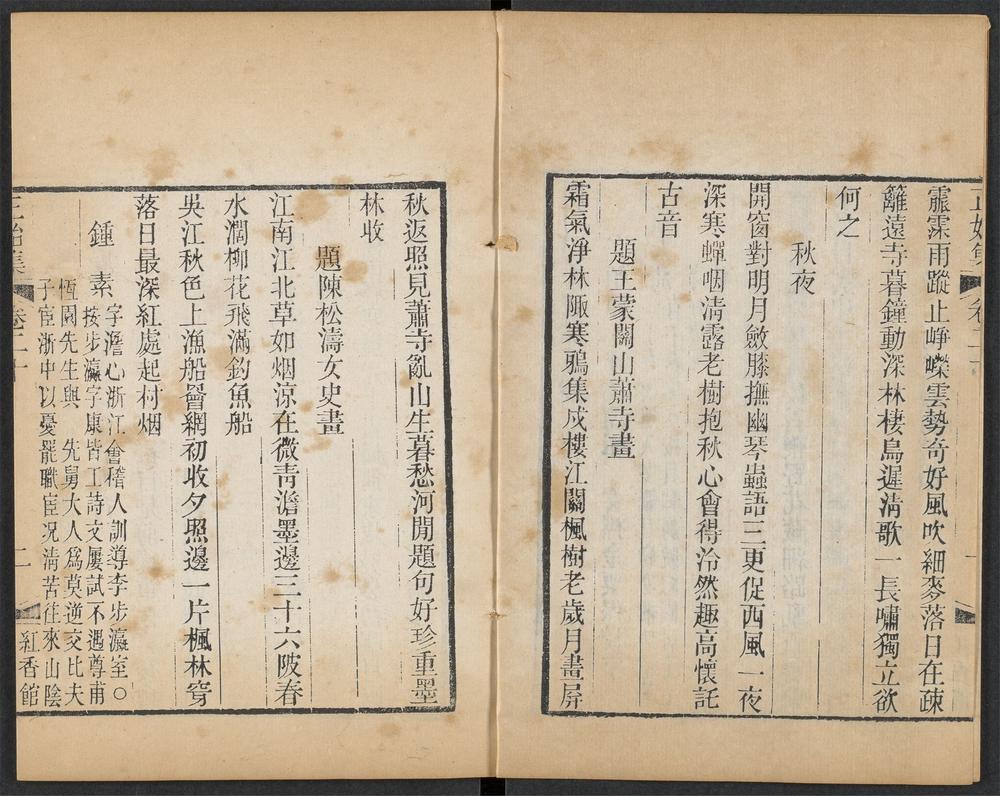 正始集 卷二十
霢霂雨蹤止崢嶸雲勢奇好風吹細麥落日在疎
籬遠寺暮鐘動深林棲鳥遲淸歌一長嘯獨立欲
何之
秋夜
開窗對明月斂膝撫幽琴蟲語三更促西風一夜
深寒蟬咽淸露老樹抱秋心會得泠然趣高懷託
古音
題王蒙關山蕭寺畫
霜氣淨林陬寒鴉集戍樓江關楓樹老歲月畫屏
秋返照見蕭寺亂山生暮愁河閒題句好珍重墨
林收
題陳松濤女史畫
江南江北草如烟涼在微靑澹墨邊三十六陂春
水濶柳花飛滿釣魚船
吳江秋色上漁船罾網初收夕照邊一片楓林穿
落日最深紅處起村烟
鍾素字澹心浙江會稽人訓導李步瀛室〇
按步瀛字康皆工詩文屢試不遇尊甫
恆園先生與 先舅大人爲莫逆交比夫
子宦浙中以憂罷職宦况淸苦往來山陰
正始集 卷二十 二 紅香館